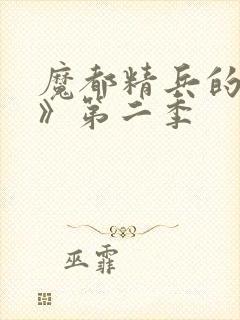 魔都精兵的
》第二季
巫霏